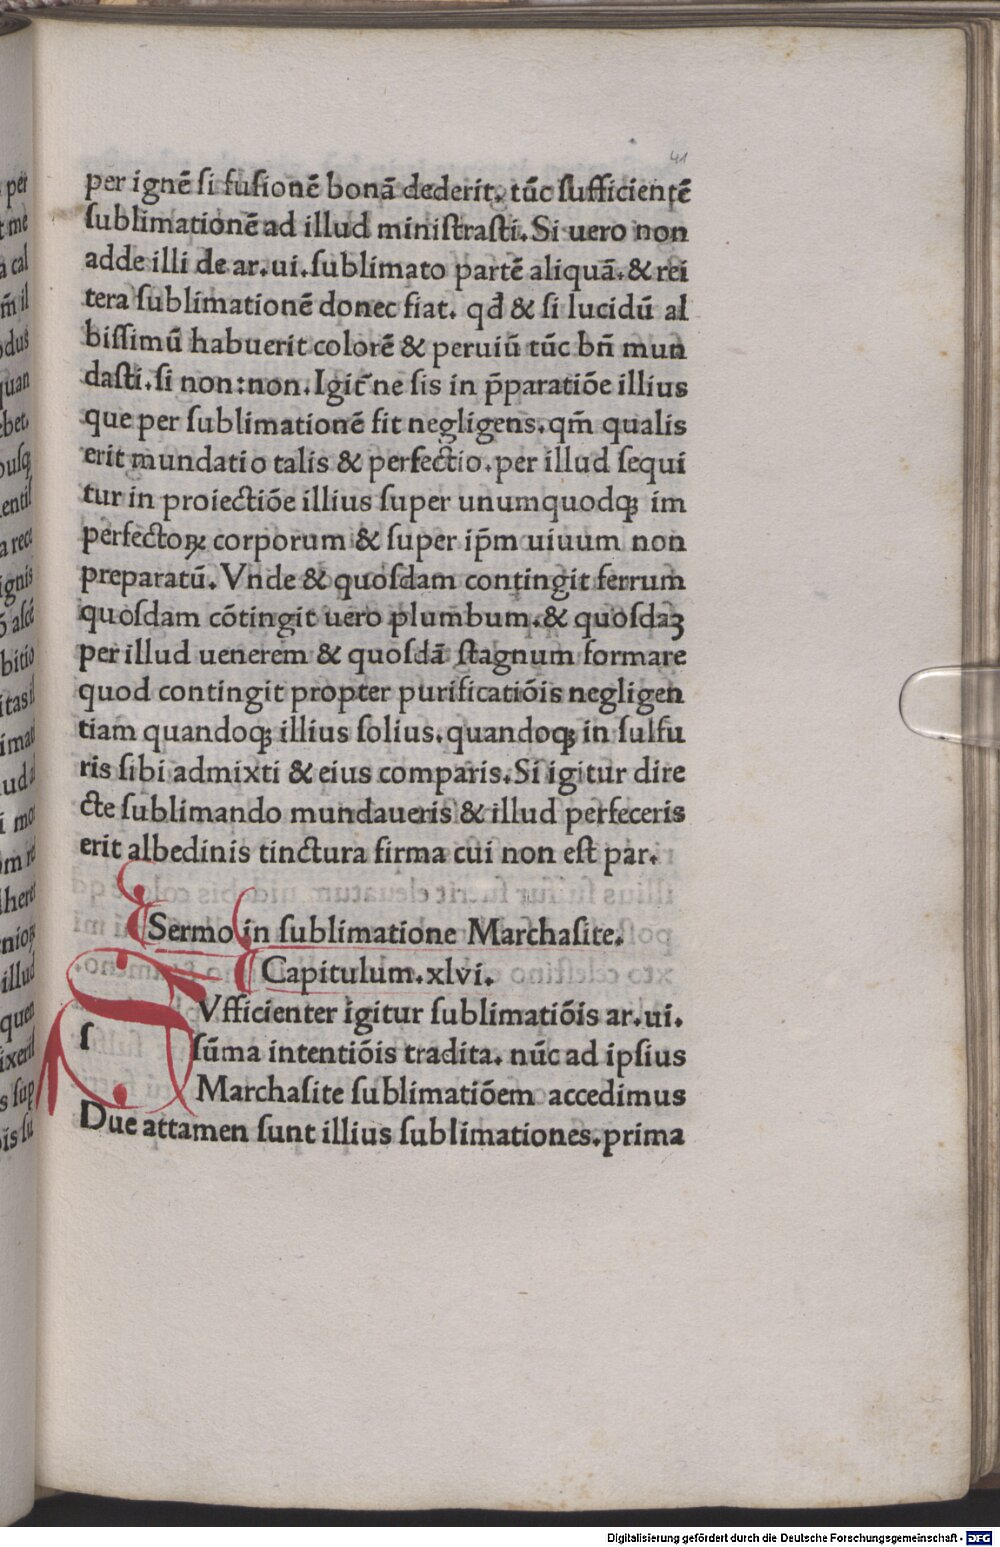 41
per ignē ſi fuſionē bonā dederit. tūc ſufficientē
ſublimationē ad illud miniſtraſti. Si uero non
adde illi de ar. ui. ſublimato partē aliquā. & rei
tera ſublimationē donec fiat. qđ & ſi lucidū al
biſſimū habuerit colorē & peruiū tūc bñ mun
daſti. ſi non: non. Igit᷑ ne ſis in p̄paratiōe illius
que per ſublimationē fit negligens. qm̄ qualis
erit mundatio talis & perfectio. per illud ſequi
tur in proiectiōe illius ſuper unumquodqꝫ im
perfectoꝝ corporum & ſuper ip̄m uiuum non
preparatū. Vnde & quoſdam contingit ferrum
quoſdam cōtingit uero plumbum. & quoſdaꝫ
per illud uenerem & quoſdā ſtagnum formare
quod contingit propter purificatiōis negligen
tiam quandoqꝫ illius ſolius. quandoqꝫ in ſulfu
ris ſibi admixti & eius comparis. Si igitur dire
cte ſublimando mundaueris & illud perfeceris
erit albedinis tinctura firma cui non eſt par.
Sermo in ſublimatione Marchaſite.
Capitulum. xlvi.
ſ Vfficienter igitur ſublimatiōis ar. ui.
ſūma intentiōis tradita. nūc ad ipſius
Marchaſite ſublimatiōem accedimus
Due attamen ſunt illius ſublimationes. prima
Digitalisierung gefördert durch die Deutsche Forschungsgemeinschaft - DFG